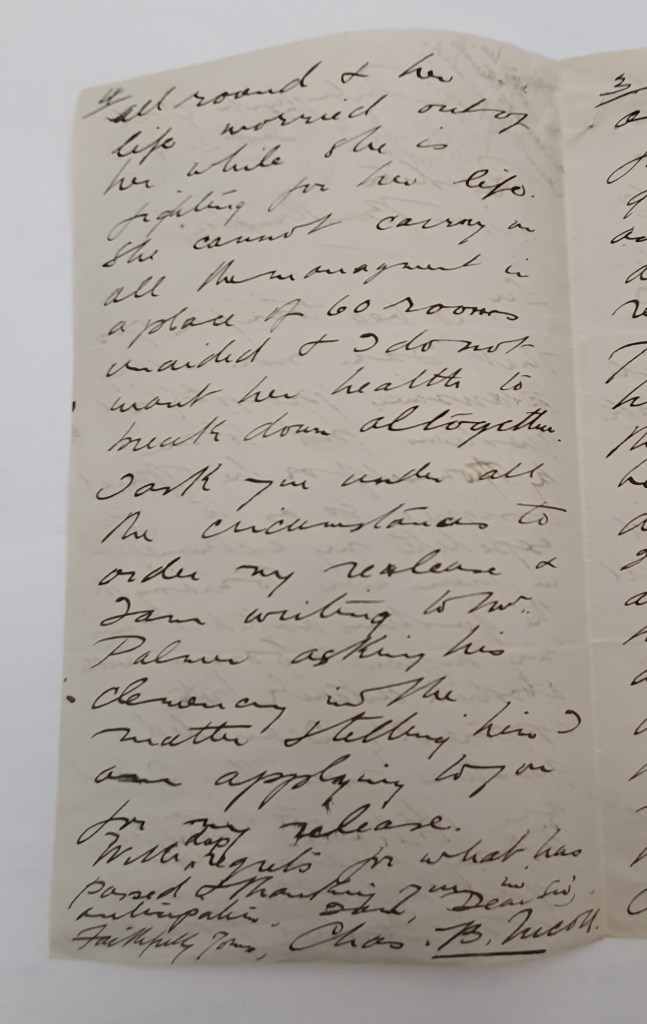 4/
all round & her
life worried out of
her while she is
fighting for her life.
She cannot carry on
all the managment in
a place of 60 rooms
unaided & I do not
want her health to
break down altogether.
I ask you under all
the circumstances to
order my realease &
I am writing to Mr.
Palmer asking his
clemency in the
matter & telling him I
am applying to you
for my release.
With deep regrets for what has
passed & thanking you in
anticipation. I am, Dear Sir,
Faithfully Yours, Chas. B. Nicoll.
3/